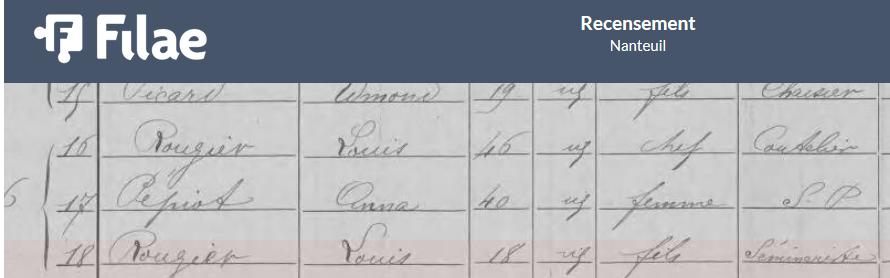 Filae
Recensement
Nanteuil
15 Vicard Edmond 19 id fils Chaisier
16 Rougier Louis 46 id chef Coutelier
6 17 Pépiot Anna 40 id femme S. P
18 Rougier Louis 18 id fils Séminariste